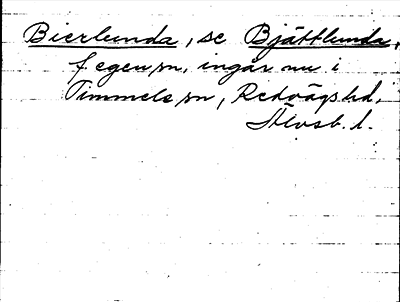 Bierlunda, se Bjättlunda,
f. egen sn, ingår nu i
Timmele sn, Redvägs hd,
Älvsb. l.